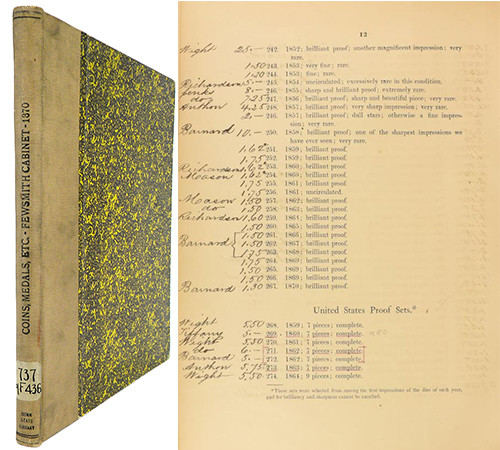 COINS, MEDALS, ETC. - FEWSMITH CABINET - 1870
737
F436
STATE
LIBRARY
12
Wight 25.— 242. 1852; brilliant proof; another magnificent impression; very
rare.
1.50 243. 1853; very fine; rare.
244. 1853; fine; rare.
Richardson 5.— 245. 1854; uncirculated; excessively rare in this condition.
8.— 246. 1855; sharp and brilliant proof; extremely rare.
do 7.25 247. 1856; brilliant proof; sharp and beautiful piece; very rare.
Anthon 4.25 248. 1857; brilliant proof; very sharp impression; very rare.
2.— 249. 1857; brilliant proof; dull stars; otherwise a fine impres-
sion; very rare.
Barnard 10.— 250. 1858; brilliant proof; one of the sharpest impressions we
have ever seen; very rare.
1.62 251. 1859; brilliant proof.
1.75 252. 1859; brilliant proof.
Richardson 1.62 253. 1860; brilliant proof.
Mason 1.62 254. 1860; brilliant proof.
1.75 255. 1861; brilliant proof.
1.75 256. 1861; uncirculated.
Mason 1.50 257. 1862; brilliant proof.
do 1.50 258. 1863; brilliant proof.
Richardson 1.60 259. 1864; brilliant proof.
1.50 260. 1865; brilliant proof.
1.50 261. 1866; brilliant proof.
Barnard 1.50 262. 1867; brilliant proof.
1.75 263. 1868; brilliant proof.
1.75 264. 1869; brilliant proof.
1.50 265. 1869; brilliant proof.
1.50 266. 1869; brilliant proof.
Barnard 1.30 267. 1870; brilliant proof.
United States Proof Sets.*
Wight 5.50 268. 1859; 7 pieces; complete.
Tiffany 5.— 269. 1860; 7 pieces; complete.
Wight 5.50 270. 1861; 7 pieces; complete.
do 6.— 271. 1862; 7 pieces; complete.
Barnard 5.— 272. 1862; 7 pieces; complete.
Anthon 5.75 273. 1863; 7 pieces; complete.
Wight 5.50 274. 1864; 9 pieces; complete.
* These sets were selected from among the first impressions of the dies of each year,
and for brilliancy and sharpness cannot be excelled.